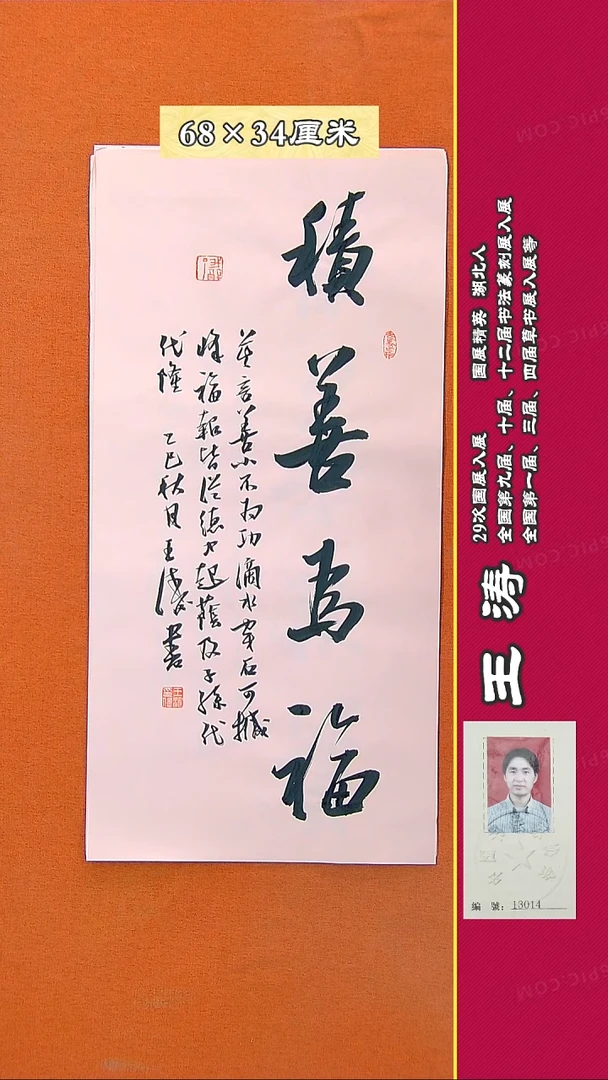 68×34厘米
積善為福
莫言善小不为功滴水穿石可撼
峰福報皆從德起蔭及子孫代
代隆 乙巳秋月王涛書
29次國展入展 國展精英 湖北人
全國第九届、十届、十二届书法篆刻展入展
全國第一届、三届、四届草书展入展等
王涛
編號:13014